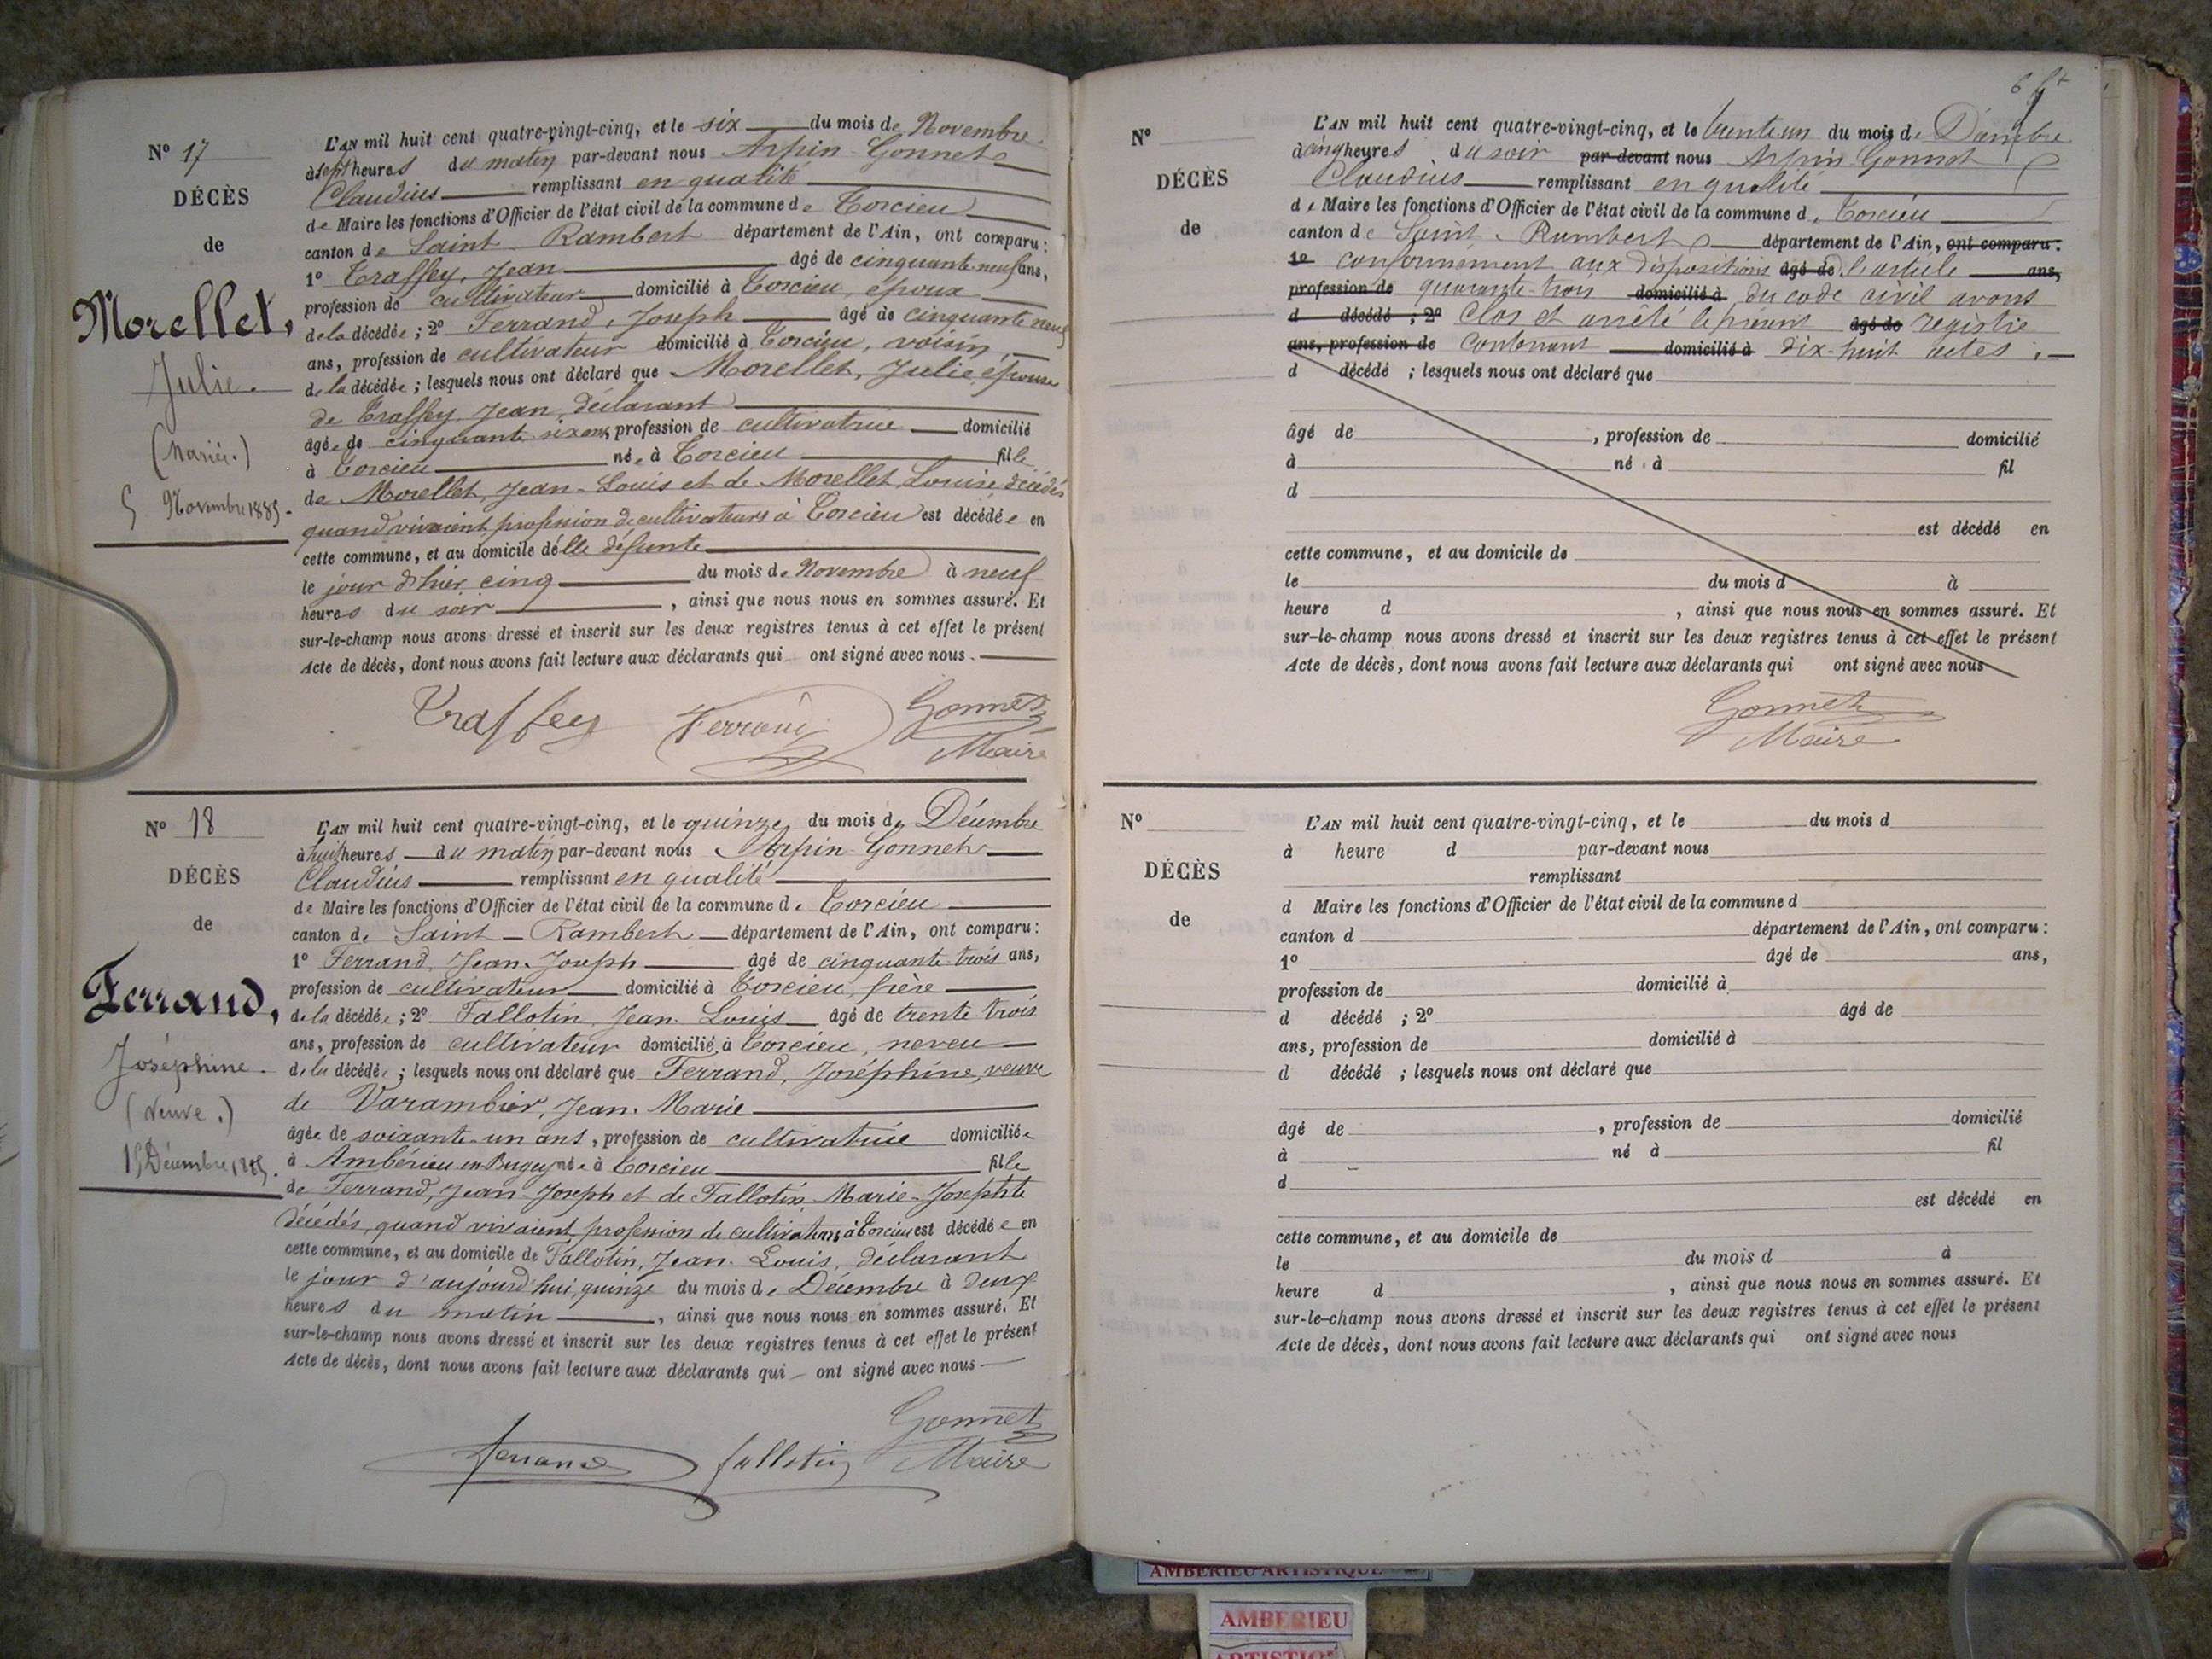 Nº 17
DÉCÈS
de
Morellet,
Julie.
(Mariée.)
5 Novembre 1885.
L'AN mil huit cent quatre-vingt-cinq, et le six du mois de Novembre
à sept heures du matin par-devant nous Arpin-Gonnet
Claudius remplissant en qualité
de Maire les fonctions d'Officier de l'état civil de la commune de Torcieu
canton de Saint-Rambert département de l'Ain, ont comparu:
1º Traffey, Jean âgé de cinquante-neuf ans,
profession de cultivateur domicilié à Torcieu, époux
de la décédée; 2º Ferrand, Joseph âgé de cinquante neuf
ans, profession de cultivateur domicilié à Torcieu, voisin
de la décédée; lesquels nous ont déclaré que Morellet, Julie, épouse
de Traffey, Jean, déclarant
âgée de cinquante six ans, profession de cultivatrice domicilié
à Torcieu née à Torcieu fille
de Morellet, Jean-Louis et de Morellet, Louise décédés
quand vivaient profession de cultivateurs à Torcieu est décédée en
cette commune, et au domicile de elle défunte
le jour d'hier cinq du mois de Novembre à neuf
heures du soir, ainsi que nous nous en sommes assuré. Et
sur-le-champ nous avons dressé et inscrit sur les deux registres tenus à cet effet le présent
Acte de décès, dont nous avons fait lecture aux déclarants qui ont signé avec nous.
Traffey Ferrand Gonnet
Maire
Nº 18
DÉCÈS
de
Ferrand,
Joséphine.
(Veuve.)
15 Décembre 1885.
L'AN mil huit cent quatre-vingt-cinq, et le quinze du mois de Décembre
à huit heures du matin par-devant nous Arpin-Gonnet
Claudius remplissant en qualité
de Maire les fonctions d'Officier de l'état civil de la commune de Torcieu
canton de Saint-Rambert département de l'Ain, ont comparu:
1º Ferrand, Jean-Joseph âgé de cinquante-trois ans,
profession de cultivateur domicilié à Torcieu, frère
de la décédée; 2º Fallotin, Jean-Louis âgé de trente trois
ans, profession de cultivateur domicilié à Torcieu, neveu
de la décédée; lesquels nous ont déclaré que Ferrand, Joséphine, veuve
de Varambier, Jean-Marie
âgée de soixante-un ans, profession de cultivatrice domiciliée
à Ambérieu en Bugey née à Torcieu fille
de Ferrand, Jean-Joseph et de Fallotin, Marie-Josephte
décédés, quand vivaient, profession de cultivateurs à Torcieu est décédée en
cette commune, et au domicile de Fallotin, Jean-Louis, déclarant
le jour d'aujourd'hui, quinze du mois de Décembre à deux
heures du matin, ainsi que nous nous en sommes assuré. Et
sur-le-champ nous avons dressé et inscrit sur les deux registres tenus à cet effet le présent
Acte de décès, dont nous avons fait lecture aux déclarants qui ont signé avec nous
Ferrand fallotin Gonnet
Maire
Nº
DÉCÈS
de
L'AN mil huit cent quatre-vingt-cinq, et le trente un du mois de Décembre
à cinq heures du soir par-devant nous Arpin-Gonnet
Claudius remplissant en qualité
de Maire les fonctions d'Officier de l'état civil de la commune de Torcieu
canton de Saint-Rambert département de l'Ain, ont comparu:
1º conformément aux dispositions âgé de de l'article ans,
profession de quarante-trois domicilié à du code civil avons
d décédé; 2º Clos et arrêté le présent âgé de registre
ans, profession de contenant domicilié à dix-huit actes.
d décédé; lesquels nous ont déclaré que
âgé de, profession de domicilié
à né à fil
d
est décédé en
cette commune, et au domicile de
le du mois d à
heure d, ainsi que nous nous en sommes assuré. Et
sur-le-champ nous avons dressé et inscrit sur les deux registres tenus à cet effet le présent
Acte de décès, dont nous avons fait lecture aux déclarants qui ont signé avec nous
Gonnet
Maire
Nº
DÉCÈS
de
L'AN mil huit cent quatre-vingt-cinq, et le du mois d
à heure d par-devant nous
remplissant
d Maire les fonctions d'Officier de l'état civil de la commune d
canton d département de l'Ain, ont comparu:
1º âgé de ans,
profession de domicilié à
d décédé; 2º âgé de
ans, profession de domicilié à
d décédé; lesquels nous ont déclaré que
âgé de, profession de domicilié
à né à fil
d
est décédé en
cette commune, et au domicile de
le du mois d à
heure d, ainsi que nous nous en sommes assuré. Et
sur-le-champ nous avons dressé et inscrit sur les deux registres tenus à cet effet le présent
Acte de décès, dont nous avons fait lecture aux déclarants qui ont signé avec nous
AMBERIEU ARTISTIQUE
AMBERIEU
ARTISTIQUE